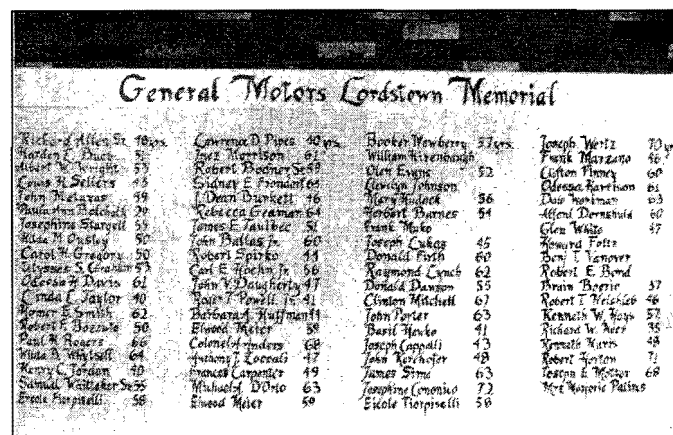 General Motors Lordstown Memorial
Richard Allen Sr. 48 yrs.
51
Albert W. Wright 53
Louis H. Sellers 43
John Metaxas 59
Paula Ann 29
Josephine 55
Hilda M. Ousley 50
Carol H. Gregory 50
Ulysses S. Graham 53
Odessa H. Davis 61
Linda E. Taylor 40
Homer E. Smith 62
Robert F. 50
Paul H. Rogers 66
64
Henry C. Jordon 40
Samuel Whittaker Sr. 55
Ercole Fiorpiselli 58
Lawrence D. Pipes 40 yrs.
Inez Morrison 61
Robert Bodnar Sr. 59
Sidney E.
J. Dean Burkett 46
Rebecca 64
James E. Taulbee 51
John Ballas Jr. 60
Robert Spirko 44
Carl E. Hoehn Jr. 56
John V. Daugherty 47
Roger T. Powell Jr. 41
Barbara A. Huffman 41
Elwood Meier 59
Colonel A. Anders 68
Anthony J. Zoccali 47
Frances Carpenter 49
Michael A. D'Orio 63
Elwood Meier 59
Booker Newberry 57 yrs.
William
Olen Evans 52
Llewlyn Johnson
Mary Hudock 56
Herbert Barnes 54
Frank Huko
Joseph Lukas 45
Donald Firth 60
Raymond Lynch 62
Donald Dawson 55
Clinton Mitchell 67
John Porter 63
Basil 41
Joseph Cappali 43
John Kerchofer 48
James Sima 63
Josephine Cononico 72
Eicole Fiorpiselli 58
Joseph Wertz 70 yrs.
Frank Marzano 46
Clifton Pinney 60
Odessa Harrison 61
Workman 63
60
Glen White 47
Howard Foltz
Benj T. Vanover
Robert E. Bond
Brain Boerio 37
Robert T. 46
Kenneth W. Hays 57
Richard W. 35
Kenneth Harris 48
Robert Horton 71
Joseph E. 68
Mrs Marjorie